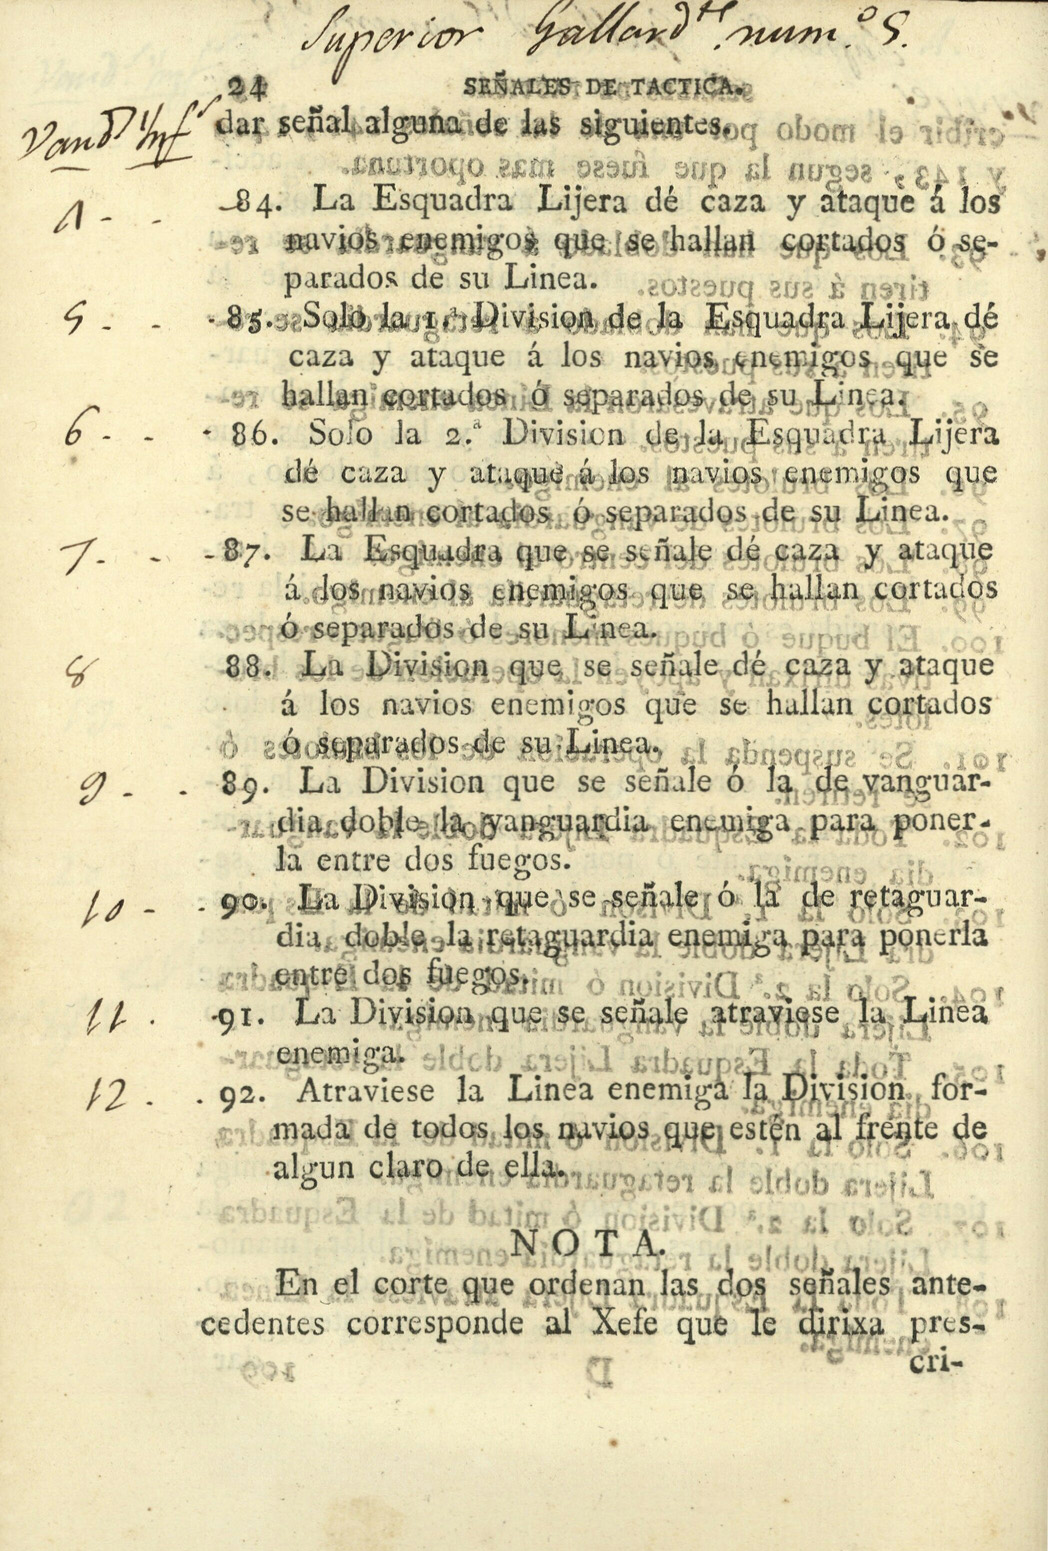 Superior Gallard.te num.o 5.
24 SEÑALES DE TACTICA.
Vand.a Inf.r
dar señal alguna de las siguientes.
1 - - 84. La Esquadra Lijera dé caza y ataque á los
navios enemigos que se hallan cortados ó se-
parados de su Linea.
5 - - 85. Solo la 1.ª Division de la Esquadra Lijera dé
caza y ataque á los navios enemigos que se
hallan cortados ó separados de su Linea.
6 - - 86. Solo la 2.ª Division de la Esquadra Lijera
dé caza y ataque á los navios enemigos que
se hallan cortados ó separados de su Linea.
7 - - 87. La Esquadra que se señale dé caza y ataque
á los navios enemigos que se hallan cortados
ó separados de su Linea.
8 88. La Division que se señale dé caza y ataque
á los navios enemigos que se hallan cortados
ó separados de su Linea.
9 - - 89. La Division que se señale ó la de vanguar-
dia doble la vanguardia enemiga para poner-
la entre dos fuegos.
10 - - 90. La Division que se señale ó la de retaguar-
dia doble la retaguardia enemiga para ponerla
entre dos fuegos.
11 - - 91. La Division que se señale atraviese la Linea
enemiga.
12 - - 92. Atraviese la Linea enemiga la Division for-
mada de todos los navios que estén al frente de
algun claro de ella.
NOTA.
En el corte que ordenan las dos señales ante-
cedentes corresponde al Xefe que le dirixa pres-
cri-